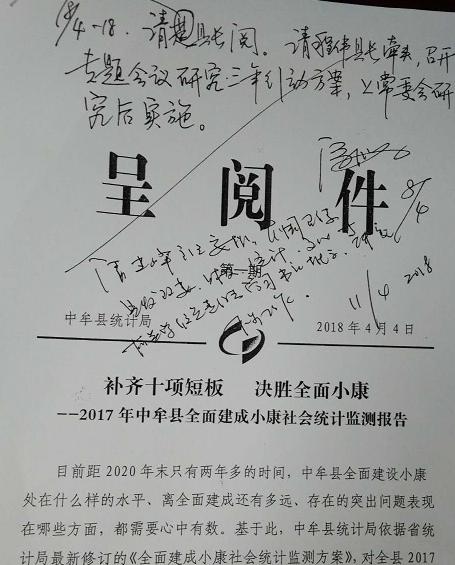 18/4-18. 请楚县长阅。请程伟县长牵头,召开
专题会议研究三年行动方案,上常委会研
究后实施。
呈阅件
8/4
第一期
11/4 2018
中牟县统计局 2018年4月4日
补齐十项短板 决胜全面小康
--2017年中牟县全面建成小康社会统计监测报告
目前距2020年末只有两年多的时间,中牟县全面建设小康
处在什么样的水平、离全面建成还有多远、存在的突出问题表现
在哪些方面,都需要心中有数。基于此,中牟县统计局依据省统
计局最新修订的《全面建成小康社会统计监测方案》,对全县2017